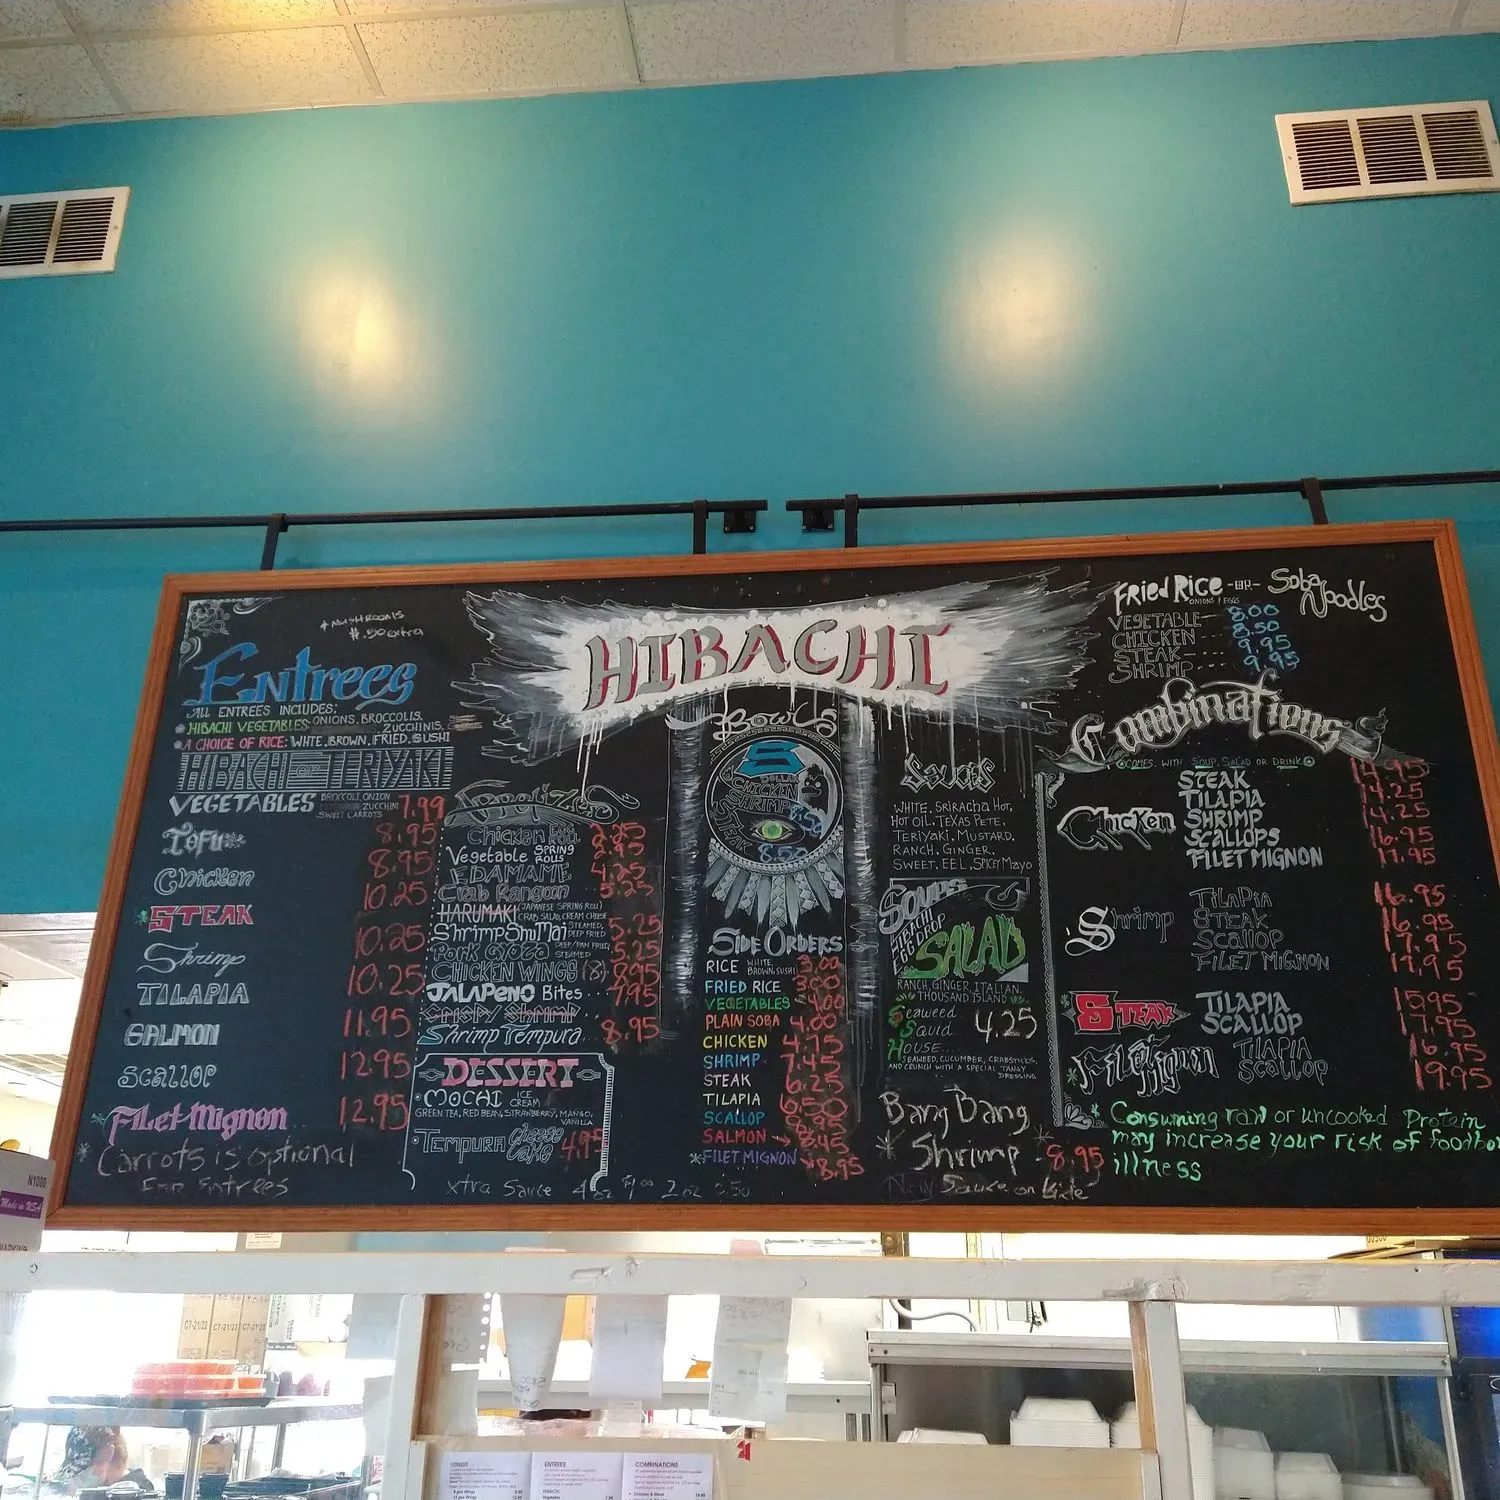 * MUSHROOMS
$.50 extra
Entrees
ALL ENTREES INCLUDES:
HIBACHI VEGETABLES: ONIONS, BROCCOLIS,
ZUCCHINIS,
A CHOICE OF RICE: WHITE, BROWN, FRIED, SUSHI
HIBACHI OR TERIYAKI
VEGETABLES BROCCOLI, ONION ZUCCHINI SWEET CARROTS 7.99
TOFU 8.95
Chicken 8.95
STEAK 10.25
Shrimp 10.25
TILAPIA 10.25
SALMON 11.95
SCALLOP 12.95
Filet Mignon 12.95
Carrots is optional
For Entrees
HIBACHI
Chicken EGG ROLL 2.25
Vegetable SPRING ROLLS 2.95
EDAMAME 4.25
Crab Rangoon 5.25
HARUMAKI (JAPANESE SPRING ROLL) CRAB SALAD, CREAM CHEESE
Shrimp Shu Mai STEAMED, DEEP FRIED 5.25
PORK GYOZA DEEP/PAN FRIED STEAMED 5.25
CHICKEN WINGS (8) 8.95
JALAPENO Bites 7.95
CRISPY SHRIMP
Shrimp Tempura 8.95
DESSERT
MOCHI ICE CREAM
GREEN TEA, RED BEAN, STRAWBERRY, MANGO,
VANILLA
TEMPURA Cheese Cake 4.95
Xtra Sauce 4 oz $1.00 2 oz $.50
BOWLS
8 DOLLAR
CHICKEN
SHRIMP 8.50
STEAK 8.50
SIDE ORDERS
RICE WHITE, BROWN, SUSHI 3.00
FRIED RICE 3.00
VEGETABLES 4.00
PLAIN SOBA 4.00
CHICKEN 4.75
SHRIMP 7.45
STEAK 6.25
TILAPIA 6.50
SCALLOP 8.95
SALMON 8.45
*FILET MIGNON 8.95
Sauces
WHITE, SRIRACHA HOT,
HOT OIL, TEXAS PETE,
TERIYAKI, MUSTARD,
RANCH, GINGER,
SWEET, EEL, SPICY Mayo
SOUPS
HIBACHI
EGG DROP
SALAD
RANCH, GINGER, ITALIAN,
THOUSAND ISLAND
Seaweed
Squid 4.25
HOUSE....
SEAWEED, CUCUMBER, CRABSTICKS,
AND CRUNCH WITH A SPECIAL TANGY
DRESSING
Bang Bang
* Shrimp 8.95
New Sauce on Side
FRIED RICE -OR- Soba Noodles
ONIONS / EGGS
VEGETABLE 8.00
CHICKEN 8.50
STEAK 9.95
SHRIMP 9.95
Combinations
COMES WITH SOUP, SALAD OR DRINK
Chicken
STEAK 14.95
TILAPIA 14.25
SHRIMP 14.25
SCALLOPS 16.95
FILET MIGNON 17.95
Shrimp
TILAPIA 16.95
STEAK 16.95
SCALLOP 17.95
FILET MIGNON 17.95
STEAK
TILAPIA 15.95
SCALLOP 17.95
Filet Mignon
TILAPIA 16.95
SCALLOP 19.95
Consuming raw or uncooked Protein
may increase your risk of foodbo
illness
N1000
Made in USA
CT-21/22
CT-21/23
WINGS
ENTREES
COMBINATIONS
HIBACHI